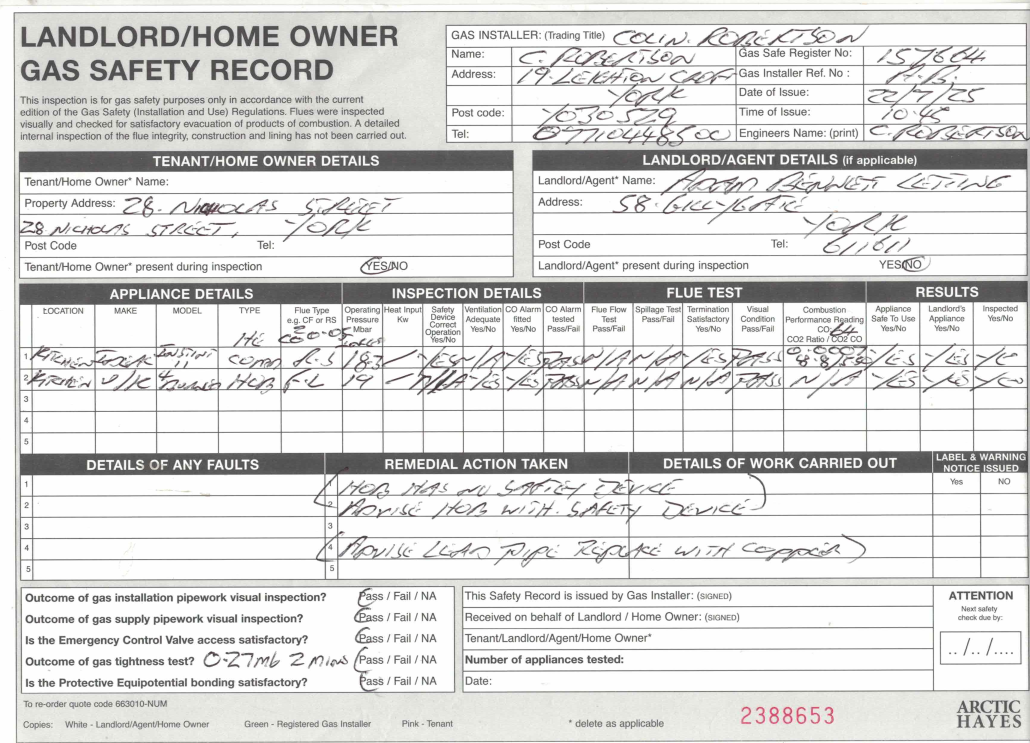 LANDLORD/HOME OWNER
GAS SAFETY RECORD
This inspection is for gas safety purposes only in accordance with the current
edition of the Gas Safety (Installation and Use) Regulations. Flues were inspected
visually and checked for satisfactory evacuation of products of combustion. A detailed
internal inspection of the flue integrity, construction and lining has not been carried out.
GAS INSTALLER: (Trading Title) COLIN. ROBERTSON
Name: C. ROBERTSON Gas Safe Register No: 157664
Address: 19. LEIGHTON CROFT Gas Installer Ref. No :
YORK Date of Issue: 22/7/25
Post code: Time of Issue: 10:45
Tel: 07710448500 Engineers Name: (print) C. ROBERTSON
TENANT/HOME OWNER DETAILS
Tenant/Home Owner* Name:
Property Address: 28. NICHOLAS STREET
28 NICHOLAS STREET, YORK
Post Code Tel:
Tenant/Home Owner* present during inspection YES/NO
LANDLORD/AGENT DETAILS (if applicable)
Landlord/Agent* Name: ADAM BENNETT LETTING
Address: 58. GILLYGATE
YORK
Post Code Tel: 611611
Landlord/Agent* present during inspection YES/NO
APPLIANCE DETAILS INSPECTION DETAILS FLUE TEST RESULTS
LOCATION MAKE MODEL TYPE Flue Type e.g. CF or RS Operating Pressure Mbar Heat Input Kw Safety Device Correct Operation Yes/No Ventilation Adequate Yes/No CO Alarm fitted Yes/No CO Alarm tested Pass/Fail Flue Flow Test Pass/Fail Spillage Test Pass/Fail Termination Satisfactory Yes/No Visual Condition Pass/Fail Combustion Performance Reading CO2 Ratio / CO2 CO Appliance Safe To Use Yes/No Landlord's Appliance Yes/No Inspected Yes/No
HE
1 KITCHEN COMB R-S 18.3 - YES N/A YES PASS N/A N/A YES PASS YES YES
2 KITCHEN 4 BURNER HOB F-L 19 - N/A YES YES PASS N/A N/A N/A PASS N/A YES YES
3
4
5
DETAILS OF ANY FAULTS REMEDIAL ACTION TAKEN DETAILS OF WORK CARRIED OUT LABEL & WARNING NOTICE ISSUED
Yes NO
1 (HOB HAS NO SAFETY DEVICE
2 2 ADVISE HOB WITH. SAFETY DEVICE)
3 3
4 4 (ADVISE LEAD PIPE REPLACE WITH COPPER)
5 5
Outcome of gas installation pipework visual inspection? Pass / Fail / NA
Outcome of gas supply pipework visual inspection? Pass / Fail / NA
Is the Emergency Control Valve access satisfactory? Pass / Fail / NA
Outcome of gas tightness test? 0.27mb 2 mins Pass / Fail / NA
Is the Protective Equipotential bonding satisfactory? Pass / Fail / NA
This Safety Record is issued by Gas Installer: (SIGNED)
Received on behalf of Landlord / Home Owner: (SIGNED)
Tenant/Landlord/Agent/Home Owner*
Number of appliances tested:
Date:
ATTENTION
Next safety
check due by:
.. /.. /....
To re-order quote code 663010-NUM
Copies: White - Landlord/Agent/Home Owner Green - Registered Gas Installer Pink - Tenant * delete as applicable
2388653
ARCTIC
HAYES